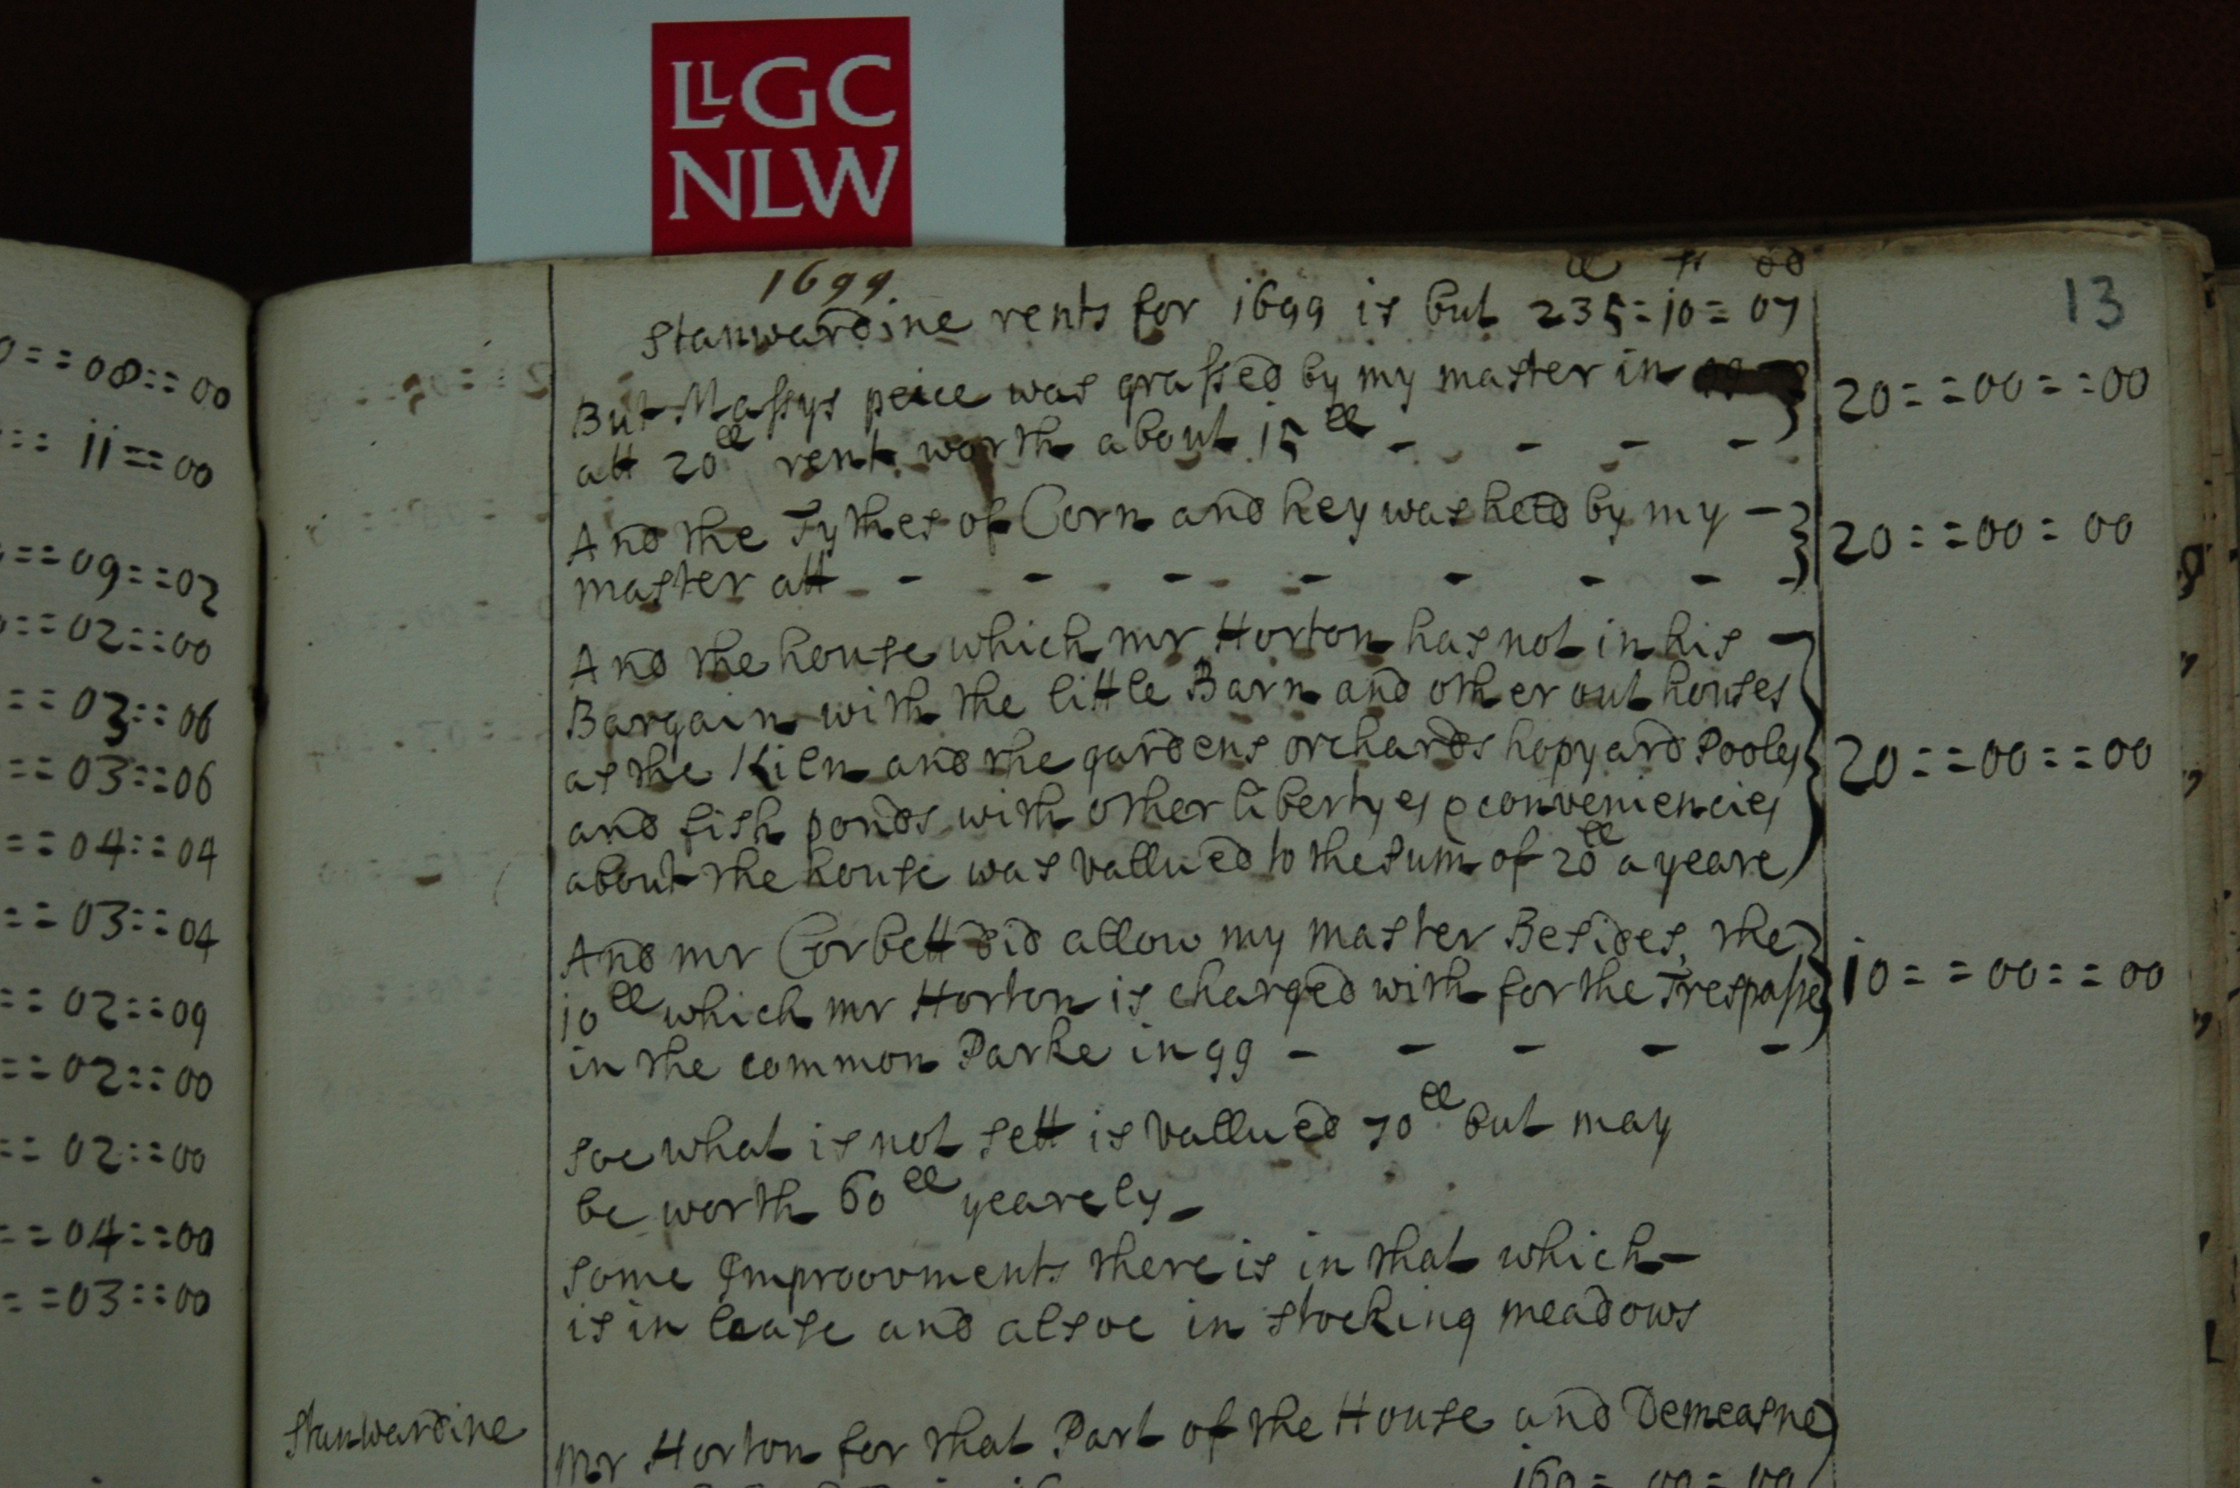 LLGC
NLW
13
1699
ll s d
Stanwardine rents for 1699 is but 235=10=07
But Massys peice was grassed by my master in
att 20ll rent worth about 15ll - - - - 20==00==00
And the Tythes of Corn and hey was held by my -
master att - - - - - - - - 20==00=00
And the house which mr Horton has not in his -
Bargain with the little Barn and other out houses
as the Kiln and the gardens orchards hopyard Pooles
and fish ponds with other libertyes & conveniencies
about the house was vallued to the sum of 20ll a yeare 20==00==00
And mr Corbett did allow my master Besides, the
10ll which mr Horton is charged with for the Trespasse
in the common Parke in 99 - - - - - 10==00==00
soe what is not sett is vallued 70ll but may
be worth 60ll yearely -
some Improovments there is in that which -
is in lease and alsoe in stocking meadows
Stanwardine
Mr Horton for that Part of the House and Demeasne
160=00=00
==08==00
== 11==00
==09==02
==02==00
==03==06
==03==06
==04==04
==03==04
==02==09
==02==00
==02==00
==04==00
==03==00